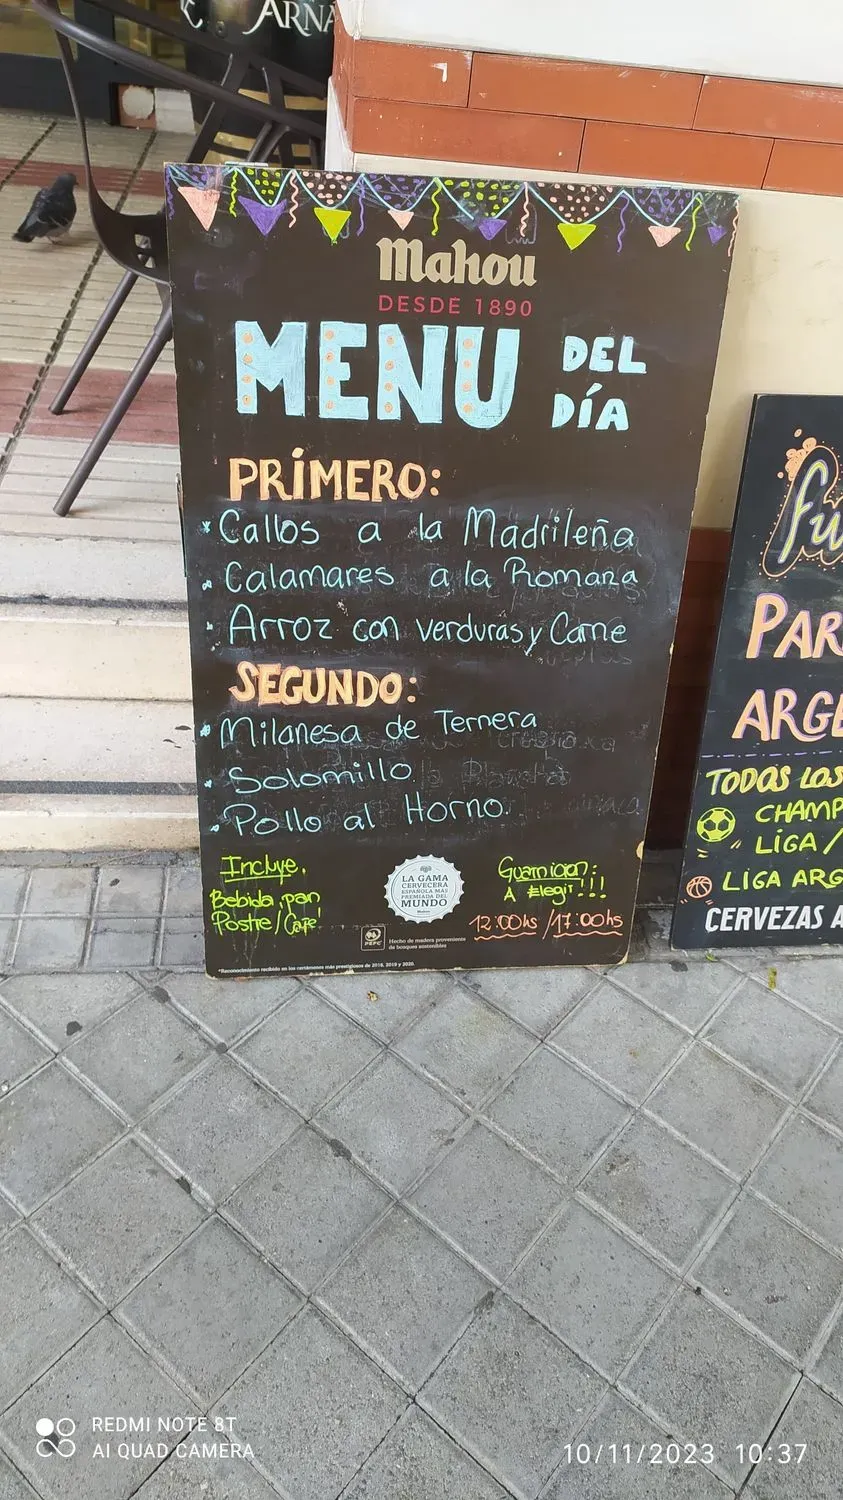 ARÑA
Mahou
DESDE 1890
MENU DEL DÍA
PRÍMERO:
* Callos a la Madrileña
- Calamares a la Romana
- Arroz con verduras y Carne
SEGUNDO:
* Milanesa de Ternera
- Solomillo
- Pollo al Horno.
Incluye.
Bebida, pan
Postre/Café!
LA GAMA
CERVECERA
ESPAÑOLA MÁS
PREMIADA DEL
MUNDO
Mahou
Guarnicion:
A Elegir!!!
12:00hs / 17:00hs
PEFC
Hecho de madera proveniente
de bosques sostenibles
*Reconocimiento recibido en los certámenes más prestigiosos de 2018, 2019 y 2020.
fu
PAR
ARGE
TODOS LOS
CHAMP
LIGA /
LIGA ARG
CERVEZAS A
REDMI NOTE 8T
AI QUAD CAMERA
10/11/2023 10:37